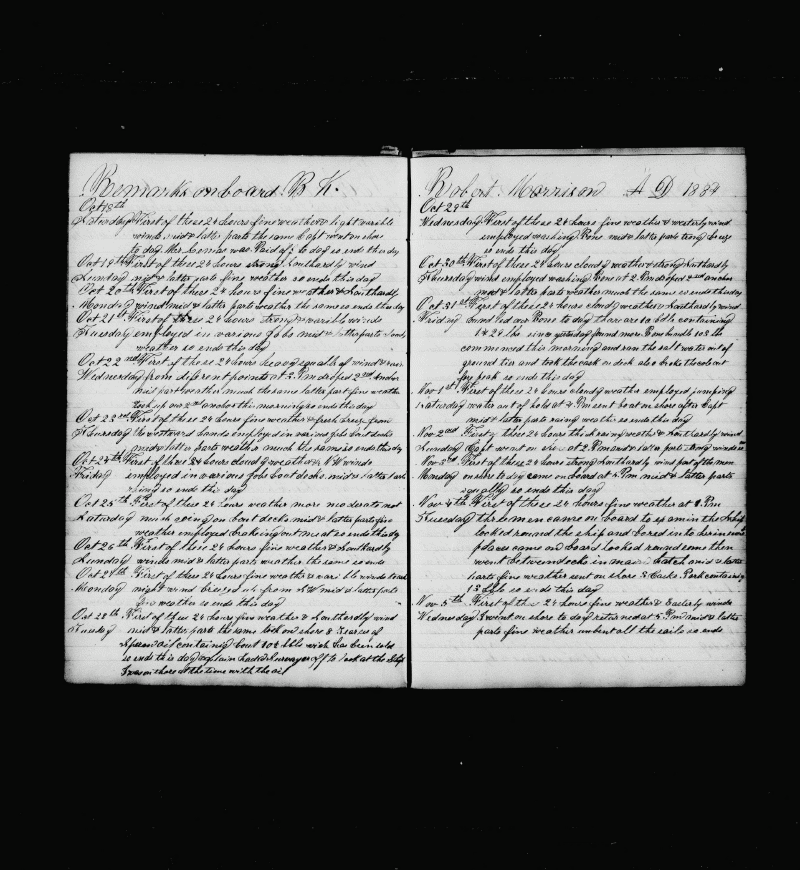 Remarks on board Bk.
Oct 18th
Saturday First of these 24 hours fine weather & light varible
winds mid & latter parts the same Capt went on shore
to day Mrs was Paid off to day so ends this day
Oct 19th First of these 24 hours strong Southardly wind
Sunday mid & latter parts fine weather so ends this day
Oct 20th First of these 24 hours fine weather & Southardly
Monday winds mid & latter parts weather the same so ends this day
Oct 21st First of these 24 hours strong & varible winds
Tuesday employed in various Jobs mid & latter parts
weather so ends this day
Oct 22nd First of these 24 hours heavy squalls of wind & rain
Wednesday from diferent points at 2 Pm droped 2nd anchor
mid part weather much the same latter part fine weather
took up our 2nd anchor this morning so ends this day
Oct 23rd First of these 24 hours fine weather & fresh breeze from
Thursday the westward hands employed in various jobs boat decks
mid & latter parts weather much the same so ends this day
Oct 24th First of these 24 hours cloudy weather & N W winds
Friday employed in various Jobs boat decks mid & latter parts
raining so ends this day
Oct 25th First of these 24 hours weather more moderate not
Saturday much doing on boat decks mid & latter parts fine
weather employed braking out meat so ends this day
Oct 26th First of these 24 hours fine weather & Southardly
Sunday winds mid & latter parts weather the same so ends
Oct 27th First of these 24 hours fine weather & varible winds
Monday might wind breezed up from S W mid & latter parts
fine weather so ends this day
Oct 28th First of these 24 hours fine weather & Southardly wind
Tuesday mid & latter part the same took on shore 8 Tearces of
Sperm oil containing bout bbls wich has been sold
so ends this day Captain had a Survayer off to look at the Ship
I was on shore at the time with the oil
Robert Morrison A D 1884
Oct 29th
Wednesday First of these 24 hours fine weather & westerly wind
employed washing Bone mid & latter parts strong breeze
so ends this day
Oct 30th First of these 24 hours cloudy weather & strong Southardly
Thursday winds employed washing Bone at 2 Pm droped 2nd anchor
mid & latter parts weather much the same so ends this day
Oct 31st First of these 24 hours cloudy weather & Southardly wind
Friday bundled our Bone to day thare are bdls containing
lbs since yesterday found more Bone bundle 103 lb
commenced this morning and ran the salt water out of
ground tier and took the cask on deck also broke the cole out
fore peak so ends this day
Nov 1st First of these 24 hours cloudy weather employed pumping
Saturday water out of hold at 4 Pm sent boat on shore after Capt
mid & latter parts rainy weather so ends this day
Nov 2nd First of these 24 hours thick rainy weather & Southardly wind
Sunday Capt went on shore at 2 Pm mid & latter parts strong winds
Nov 3rd First of these 24 hours strong Southardly wind part of the men
Monday on shore to day came on board at 5 Pm mid & latter parts
squally so ends this day
Nov 4th First of these 24 hours fine weather at 1 Pm
Tuesday three men came on board to exsamin the Ship
looked round the ship and bored into her in some
places came on board looked round some then
went between decks in main Hatch mid & latter
parts fine weather sent on shore 3 Casks Pork containing
13 bbls so ends this day
Nov 5th First of the 24 hours fine weather & Easterly winds
Wednesday I went on shore to day returned at 5 Pm mid & latter
parts fine weather unbent all the sails so ends